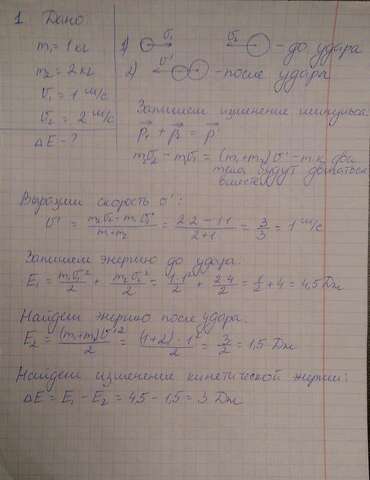 1 Дано
m₁ = 1 кг 1) υ₁ υ₂ - до удара
m₂ = 2 кг 2) υ' - после удара
υ₁ = 1 м/с
υ₂ = 2 м/с Запишем изменение импульса:
ΔE - ? p₁ + p₂ = p'
m₂υ₂ - m₁υ₁ = (m₁+m₂)υ' - т.к. два
тела будут двигаться
вместе.
Выразим скорость υ':
υ' = (m₂υ₂ - m₁υ₁)/(m₁+m₂) = (2·2 - 1·1)/(2+1) = 3/3 = 1 м/с
Запишем энергию до удара:
E₁ = m₁υ₁²/2 + m₂υ₂²/2 = 1·1/2 + 2·4/2 = 1/2 + 4 = 4,5 Дж
Найдем энергию после удара:
E₂ = (m₁+m₂)υ'²/2 = (1+2)·1²/2 = 3/2 = 1,5 Дж
Найдем изменение кинетической энергии:
ΔE = E₁ - E₂ = 4,5 - 1,5 = 3 Дж